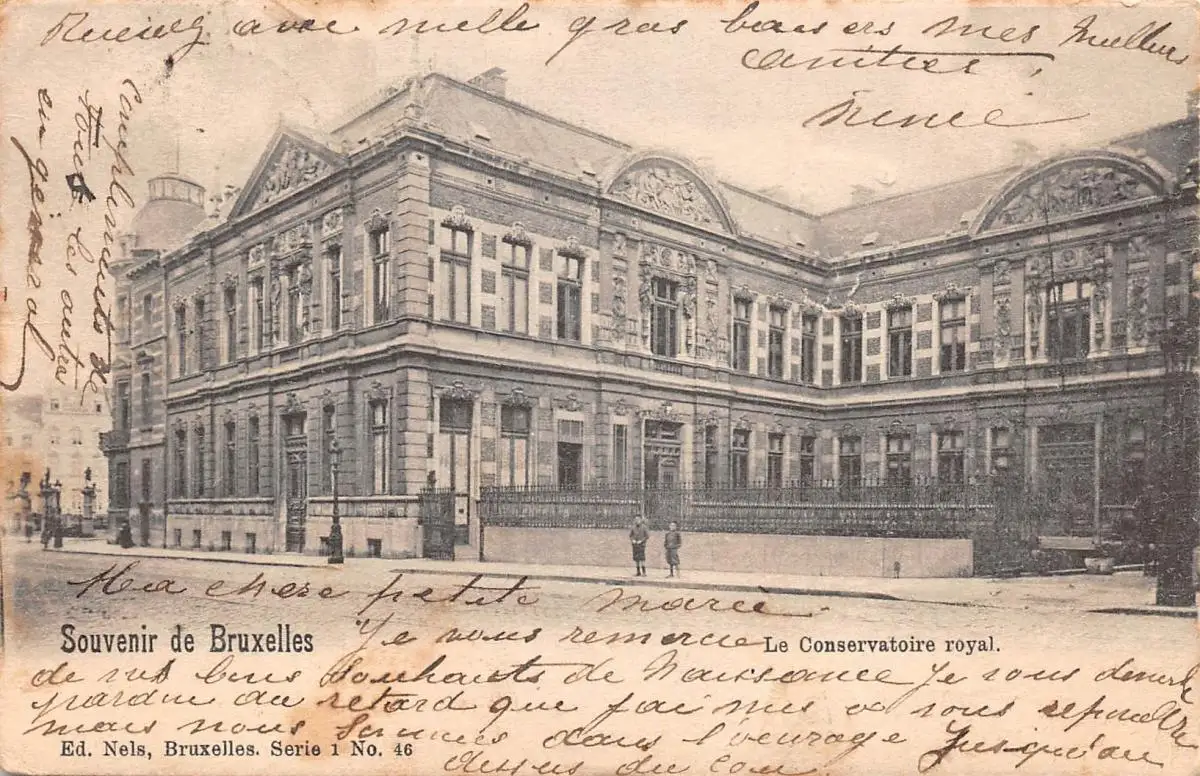 Ma chere petite Marie
Je vous remercie
de vos bons Souhaits de Naissance Je vous demande
pardon du retard que j'ai mis a vous repondre
mais nous Sommes dans l'ouvrage Jusqu'au
dessus du cou
Recevez avec mille gros baisers mes Meilleurs
amities
Compliments de
tous les autres
en general
Souvenir de Bruxelles
Le Conservatoire royal.
Ed. Nels, Bruxelles. Serie 1 No. 46